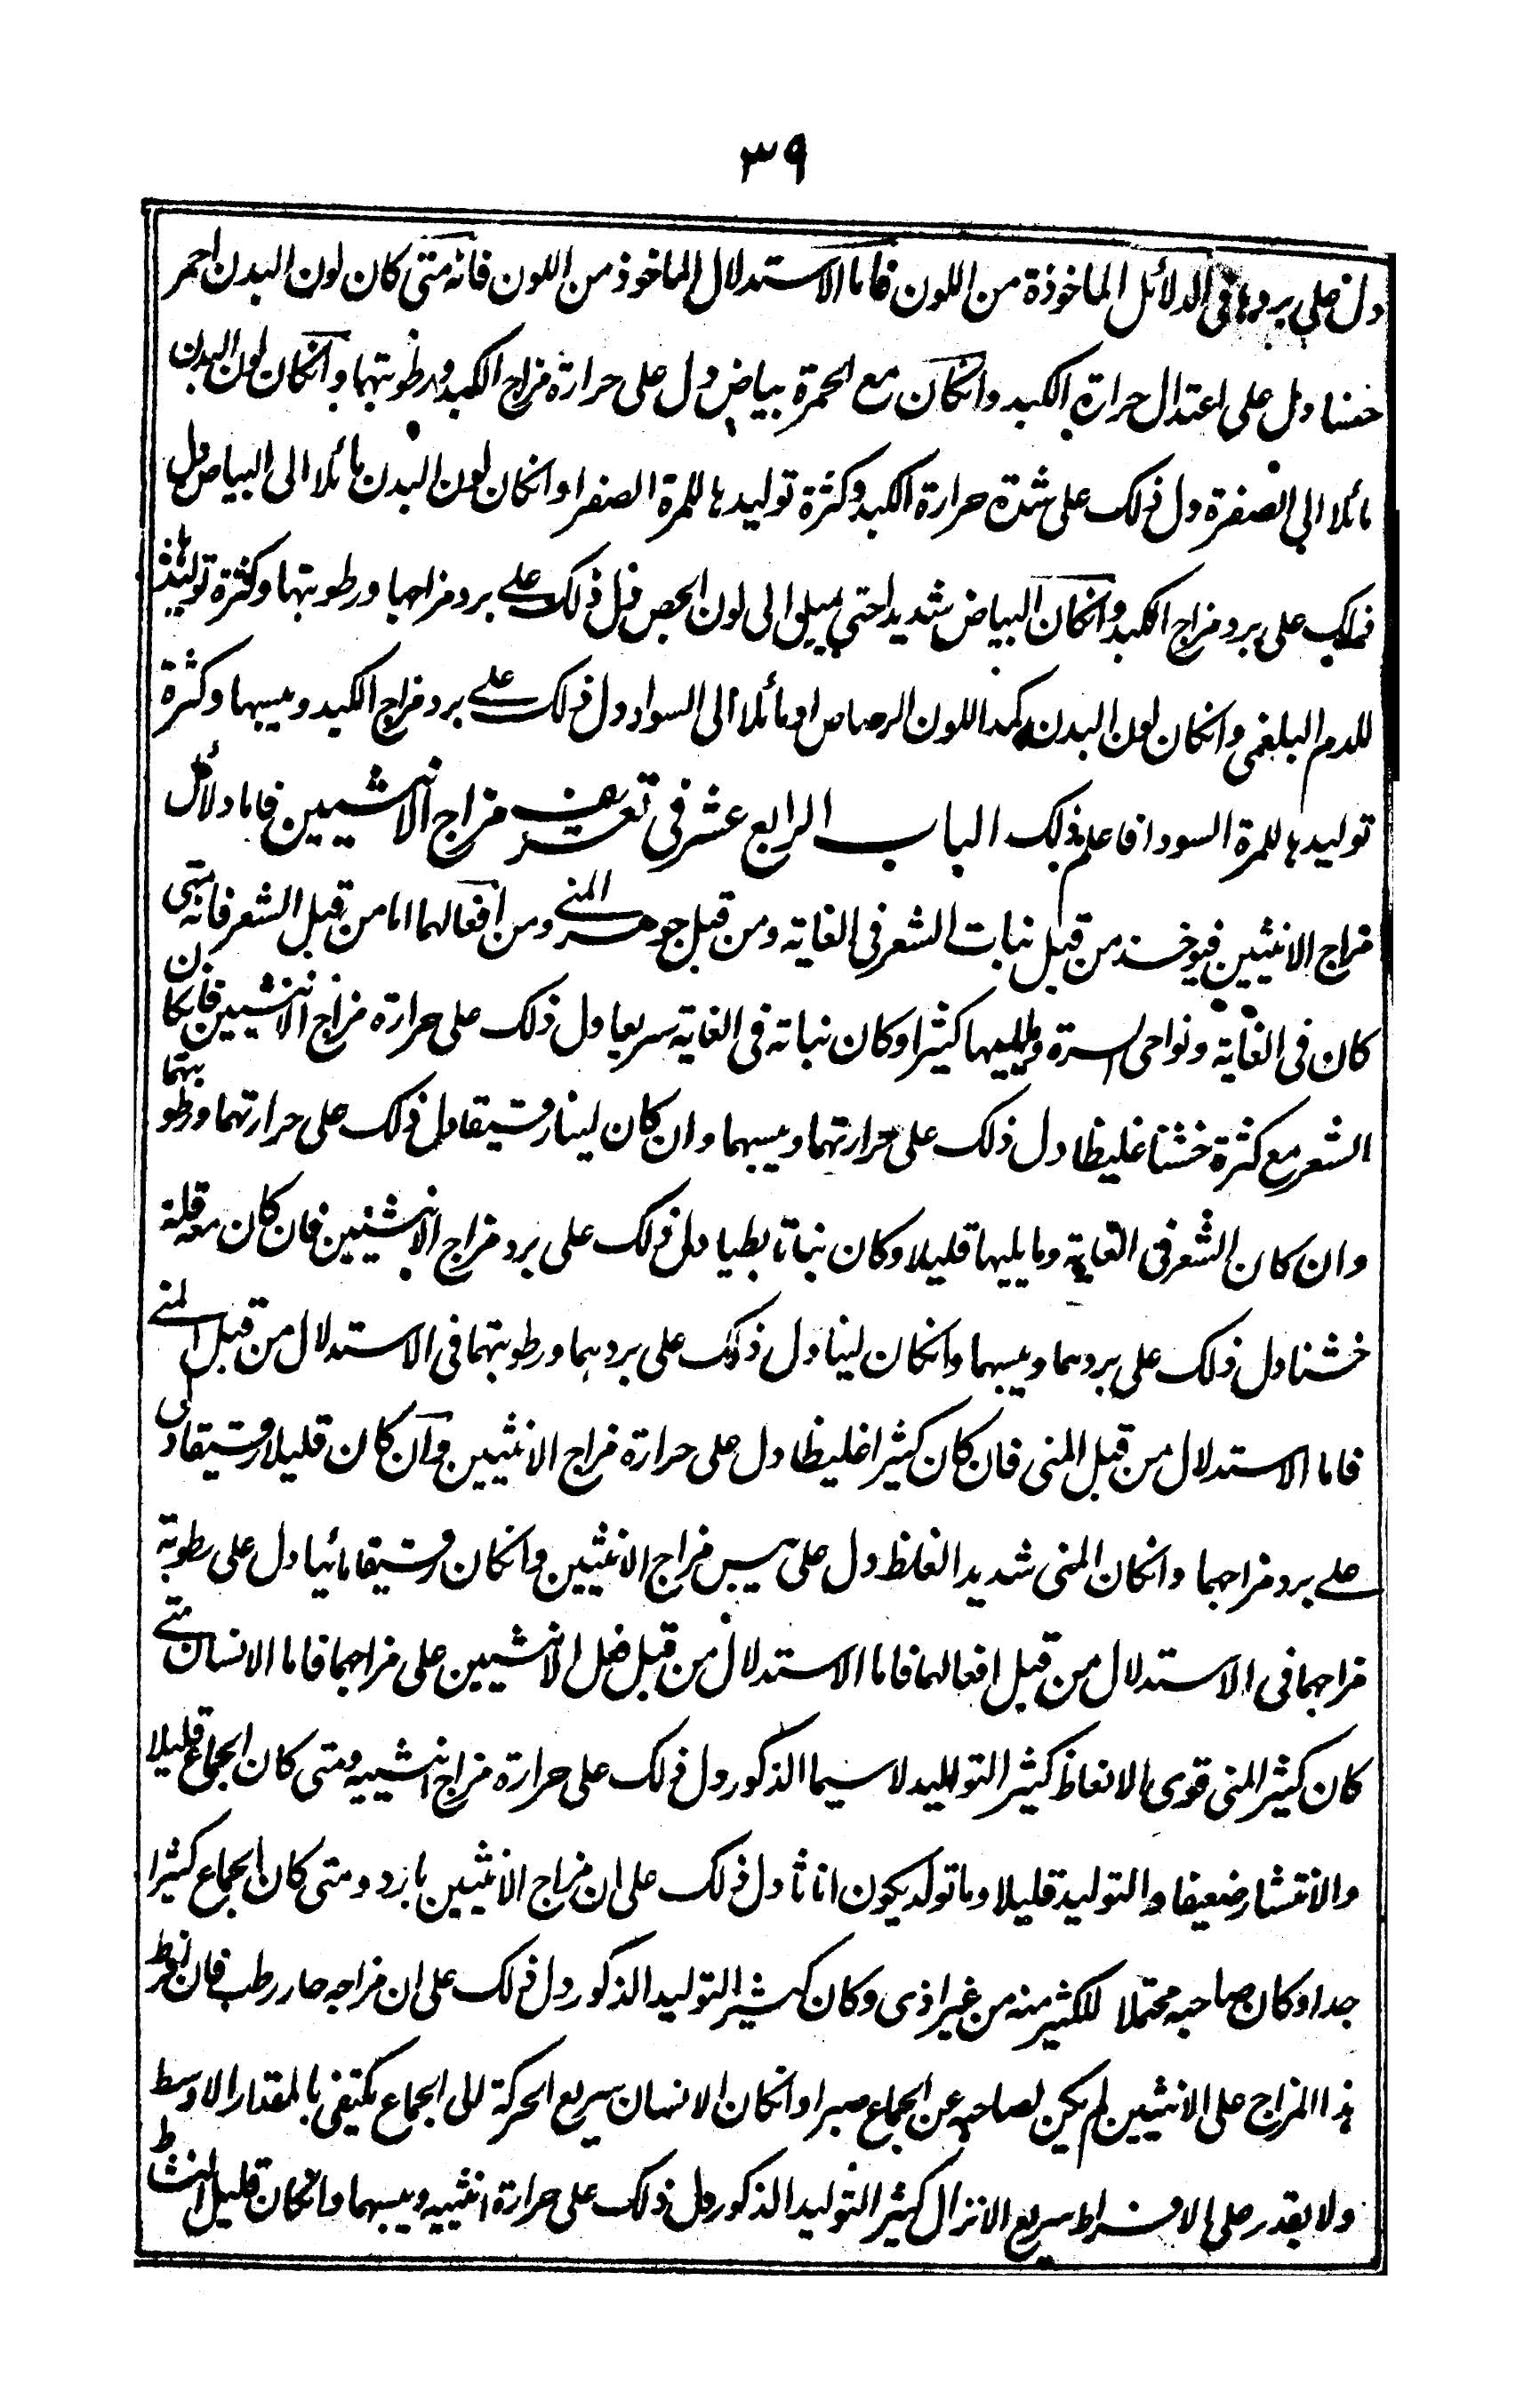 ٣٩
دل على بردها فى الدلائل الماخوذة من اللون فاما الاستدلال الماخوذ من اللون فانه متى كان لون البدن احمر
حسنا دل على اعتدال حرارة الكبد وانكان مع الحمرة بياض دل على حرارة مزاج الكبد ورطوبتها وانكان لون البدن
مائلا الى الصفرة دل ذلك على شدة حرارة الكبد وكثرة توليدها للمرة الصفرا وانكان لون البدن مائلا الى البياض دل
ذلك على برد مزاج الكبد وانكان البياض شديدا حتى يميل الى لون الجص فدل ذلك على برد مزاجها ورطوبتها وكثرة توليدها
للدم البلغمى وانكان لون البدن كمد اللون الرصاص او مائلا الى السواد دل ذلك على برد مزاج الكبد ويبسها وكثرة
توليدها للمرة السودا فاعلم ذلك الباب الرابع عشر فى تعريف مزاج الانثيين فاما دلائل
مزاج الانثيين فيوخذ من قبل نبات الشعر فى الغاية ومن قبل جوهر المنى ومن افعالهما اما من قبل الشعر فانه متى
كان فى الغاية ونواحى السرة ومايليها كثيرا وكان نباته فى الغاية سريعا دل ذلك على حرارة مزاج الانثيين فانكان
الشعر مع كثرة خشنا غليظا دل ذلك على حرارتهما ويبسهما وان كان لينا رقيقا دل ذلك على حرارتهما ورطوبتهما
وان كان الشعر فى الغاية ومايليها قليلا وكان نباتا بطيا دل ذلك على برد مزاج الانثيين فان كان مع قلة
خشنا دل ذلك على بردهما ويبسهما وانكان لينا دل ذلك على بردهما ورطوبتهما فى الاستدلال من قبل المنى
فاما الاستدلال من قبل المنى فان كان كثيرا غليظا دل على حرارة مزاج الانثيين وان كان قليلا رقيقا دل
على برد مزاجهما وانكان المنى شديد الغلظ دل على يبس مزاج الانثيين وانكان رقيقا مائيا دل على رطوبة
مزاجهما فى الاستدلال من قبل افعالهما فاما الاستدلال من قبل فعل الانثيين على مزاجهما فاما الانسان متى
كان كثير المنى قوى الانعاظ كثير التوليد لا سيما الذكور دل ذلك على حرارة مزاج انثييه ومتى كان الجماع قليلا
والانتشار ضعيفا والتوليد قليلا وما تولد يكون اناثا دل ذلك على ان مزاج الانثيين بارد ومتى كان الجماع كثيرا
جدا وكان صاحبه محتملا للكثير منه من غير اذى وكان كثير التوليد الذكور دل ذلك على ان مزاجه حار رطب فان افرط
هذا المزاج على الانثيين لم يكن لصاحبه عن الجماع صبرا وانكان الانسان سريع الحركة للى الجماع مكتفى بالمقدار الاوسط
ولا يقدر على الافراط سريع الانزال كثير التوليد الذكور دل ذلك على حرارة انثييه ويبسهما وانكان قليل النشاط